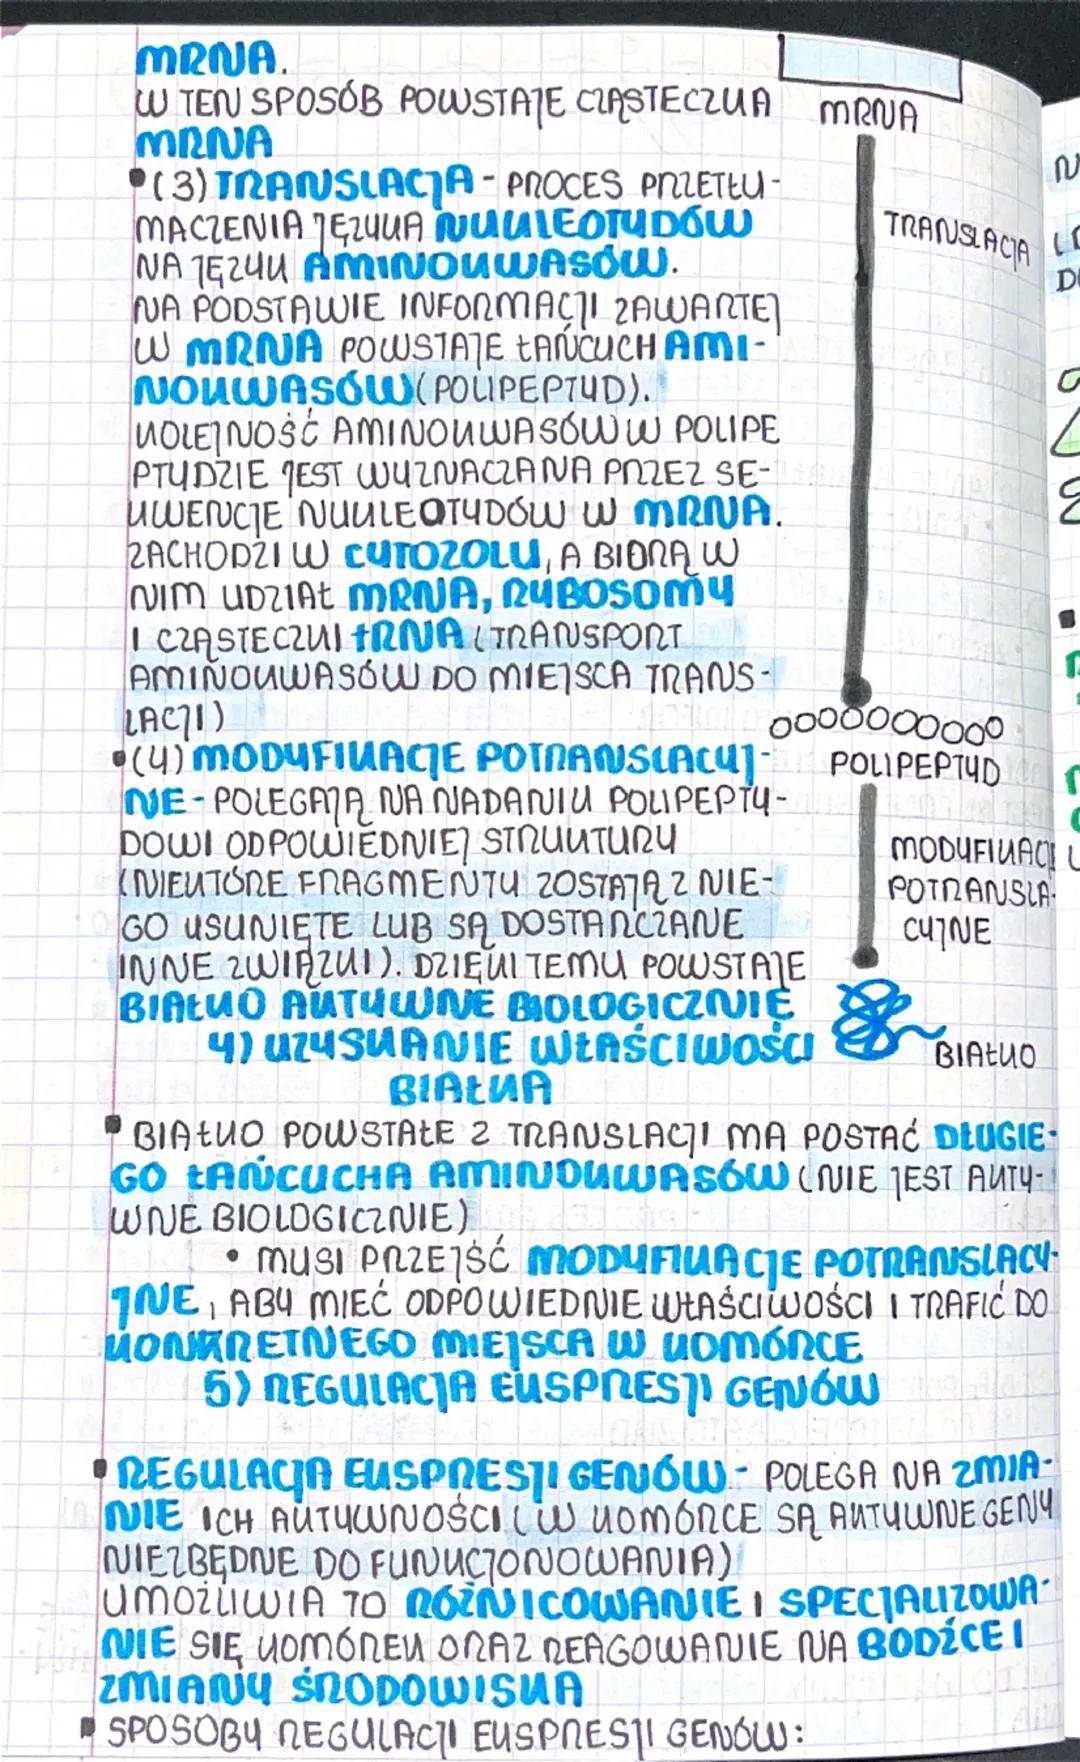 mRNA.
W TEN SPOSÓB POWSTAJE CZĄSTECZKA
mRNA
(3) TRANSLACJA - PROCES PRZETŁU-
MACZENIA JĘZYKA NUKLEOTYDÓW
NA JĘZYK AMINOKWASÓW.
NA PODSTAWIE INFORMACJI ZAWARTEJ
W mRNA POWSTAJE ŁAŃCUCH AMI-
NOKWASÓW (POLIPEPTYD).
KOLEJNOŚĆ AMINOKWASÓW W POLIPE
PTYDZIE JEST WYZNACZANA PRZEZ SE-
KWENCJE NUKLEOTYDÓW W mRNA.
ZACHODZI W CYTOZOLU, A BIORĄ W
NIM UDZIAŁ mRNA, RYBOSOMY
I CZĄSTECZKI tRNA (TRANSPORT
AMINOKWASÓW DO MIEJSCA TRANS-
LACJI)
(4) MODYFIKACJE POTRANSLACYJ-
NE - POLEGAJĄ NA NADANIU POLIPEPTY-
DOWI ODPOWIEDNIEJ STRUKTURY
(NIEKTÓRE FRAGMENTY ZOSTAJĄ Z NIE-
GO USUNIĘTE LUB SĄ DOSTARCZANE
INNE ZWIĄZKI). DZIĘKI TEMU POWSTAJE
BIAŁKO AKTYWNE BIOLOGICZNIE
mRNA
TRANSLACJA
POLIPEPTYD
MODYFIKACJE
POTRANSLA-
CYJNE
BIAŁKO
4) UZYSKANIE WŁAŚCIWOŚCI
BIAŁKA
BIAŁKO POWSTAŁE Z TRANSLACJI MA POSTAĆ DŁUGIE-
GO ŁAŃCUCHA AMINOKWASÓW (NIE JEST AKTY-
WNE BIOLOGICZNIE)
• MUSI PRZEJŚĆ MODYFIKACJE POTRANSLACY-
JNE, ABY MIEĆ ODPOWIEDNIE WŁAŚCIWOŚCI I TRAFIĆ DO
KONKRETNEGO MIEJSCA W KOMÓRCE
5) REGULACJA EKSPRESJI GENÓW
REGULACJA EKSPRESJI GENÓW - POLEGA NA ZMIA-
NIE ICH AKTYWNOŚCI (W KOMÓRCE SĄ AKTYWNE GENY
NIEZBĘDNE DO FUNKCJONOWANIA)
UMOŻLIWIA TO RÓŻNICOWANIE I SPECJALIZOWA-
NIE SIĘ KOMÓREK ORAZ REAGOWANIE NA BODŹCE I
ZMIANY ŚRODOWISKA
SPOSOBY REGULACJI EKSPRESJI GENÓW: